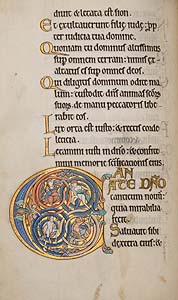 diuit & letata est sion.
Et exultauerunt filię iudę: ppter
iudicia tua domine.
Quoniam tu dominus altissimus
sup omnem terram: nimis exaltatus
es sup omnes deos.
Qui diligitis dominum odite malum:
custodit dns animas scorum
suorum de manu peccatoris liberabit
eos.
Lux orta est iusto: & rectis corde
letitia.
Letamini iusti in dno: & confitemini
memorie scificationis eius.
CAN
TATE DNO
canticum nouū:
quia mirabilia
fecit.
Saluauit sibi
dextera eius: &